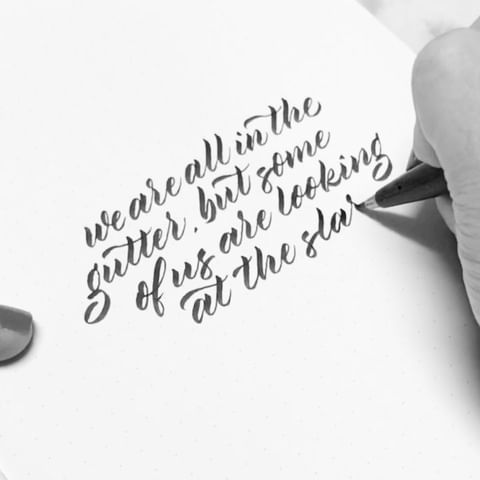 we are all in the
gutter, but some
of us are looking
at the star